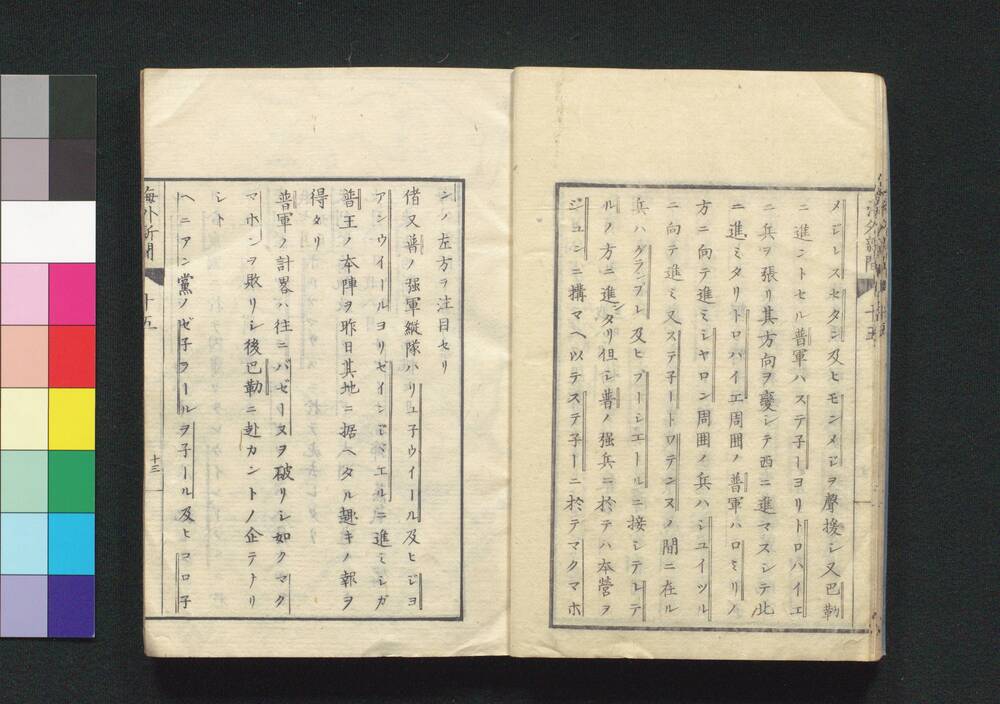 メジレスセタン及ヒモンメジヲ聲援シ又巴勒
ニ進ントセル普軍ハステ子ーヨリトロハイエ
ニ兵ヲ張リ其方向ヲ變シテ西ニ進マスシテ此
ニ進ミタリトロバイエ周囲ノ普軍ハロミリノ
方ニ向テ進ミシヤロン周囲ノ兵ハシユイツル
ニ向テ進ミ又ステ子ートワテンヌノ間ニ在ル
兵ハグランプレ及ヒブーシエールニ接シテレテ
ルノ方ニ進ンタリ但シ普ノ強兵ニ於テハ本營ヲ
ジユンニ搆マヘ以テステ子ーニ於テマクマホ
ンノ左方ヲ注目セリ
偖又普ノ强軍縱隊ハリユ子ウイール及ヒジヨ
アンウイールヨリゼインジミエルニ進ミシガ
普王ノ本陣ヲ昨日其地ニ据ヘタル趣キノ報ヲ
得タリ
普軍ノ計畧ハ往ニバゼーヌヲ破リシ如クマク
マホンヲ敗リシ後巴勒ニ赴カントノ企テナリ
シト
ヘニアン黨ノゼ子ラールヲ子ール及ヒマロ子
海外新聞 十五
十三